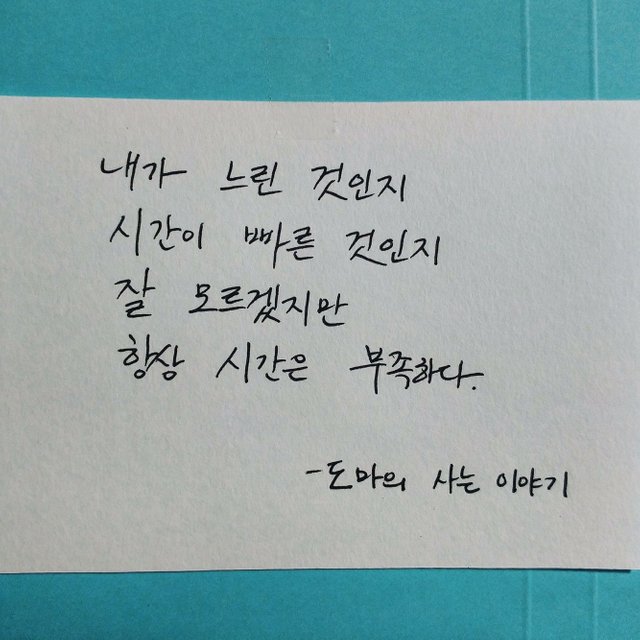 내가 느린 것인지
시간이 빠른 것인지
잘 모르겠지만
항상 시간은 부족하다.
-도마의 사는 이야기